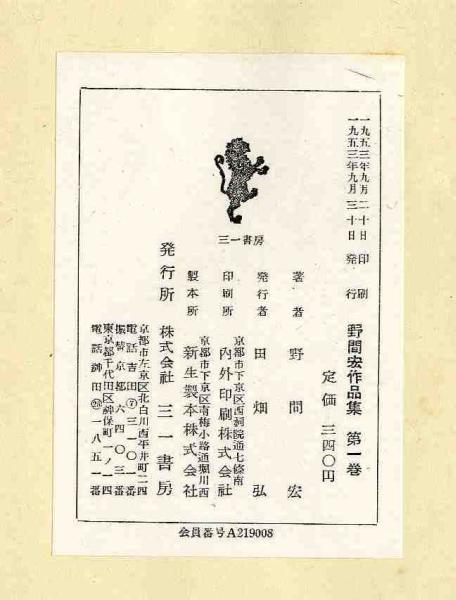 一九五三年九月二十日 印刷
一九五三年九月三十日 発行
野間宏作品集 第一巻
定価 三四〇円
著者 野間宏
発行者 田畑弘
京都市下京区西洞院通七條南
印刷所 内外印刷株式会社
京都市下京区南梅小路通堀川西
製本所 新生製本株式会社
発行所 株式会社 三一書房
京都市左京区北白川西平井町二四
電話吉田⑦三一〇一番
振替京都六四〇三番
東京都千代田区神保町一ノ一四
電話神田㉕一八五一番
三一書房
会員番号A219008